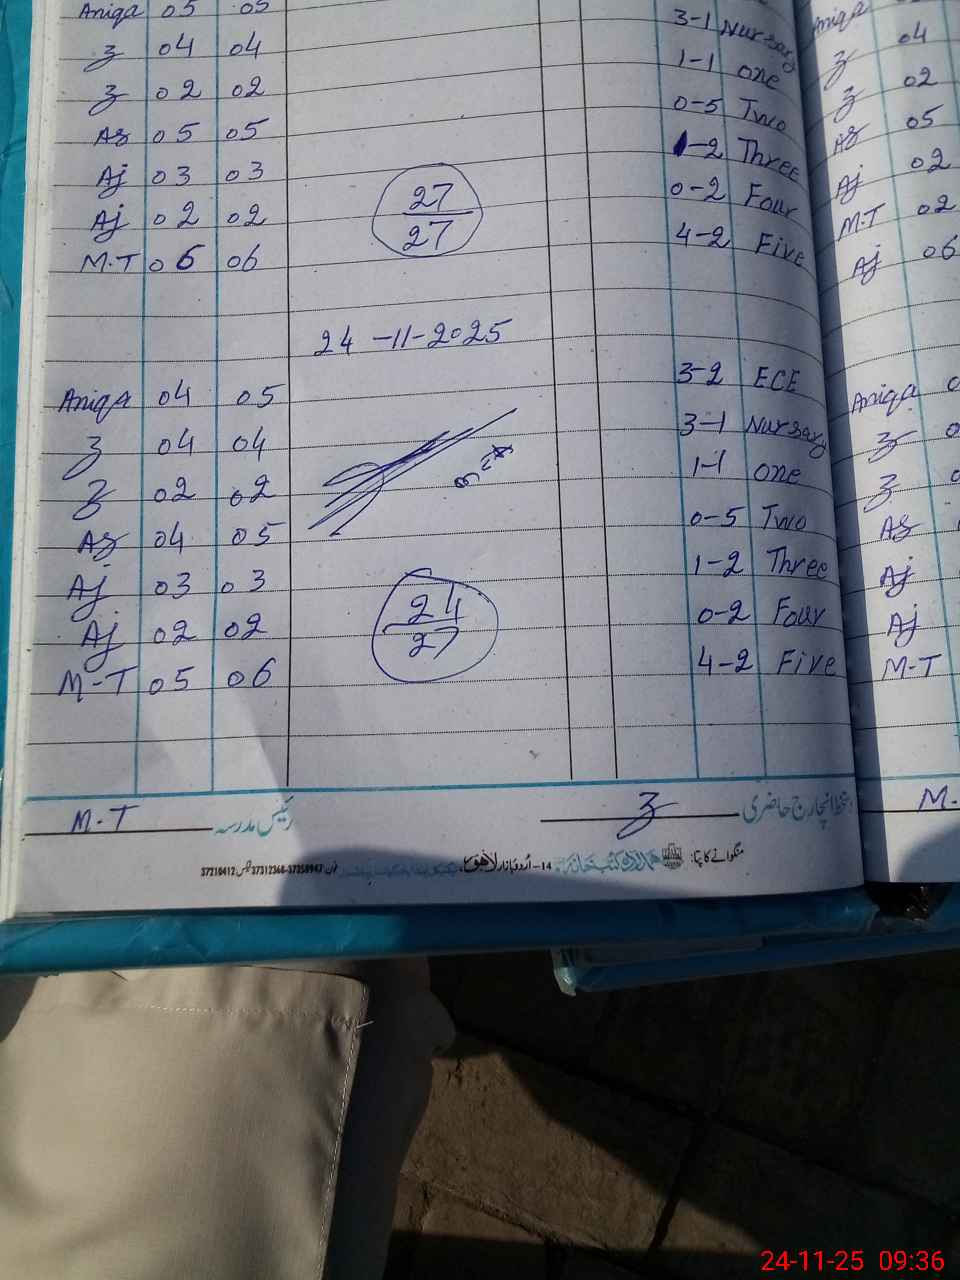 Aniqa 05 05 3-1 Nursary Aniqa
04 04 1-1 One 04
02 02 0-5 Two 02
As 05 05 1-2 Three As 05
Aj 03 03 27 0-2 Four Aj 02
Aj 02 02 27 4-2 Five M.T 02
M.T 06 06 Aj 06
24-11-2025
Aniqa 04 05 3-2 ECE Aniqa
04 04 3-1 Nursary
02 02 1-1 One
As 04 05 0-5 Two As
Aj 03 03 24 1-2 Three Aj
Aj 02 02 27 0-2 Four Aj
M-T 05 06 4-2 Five M-T
M.T رئیس مدرسہ دستخط انچارج حاضری M.
منگوانے کا پتا: ہمدرد کتب خانہ 14-اردو بازار لاہور
24-11-25 09:36